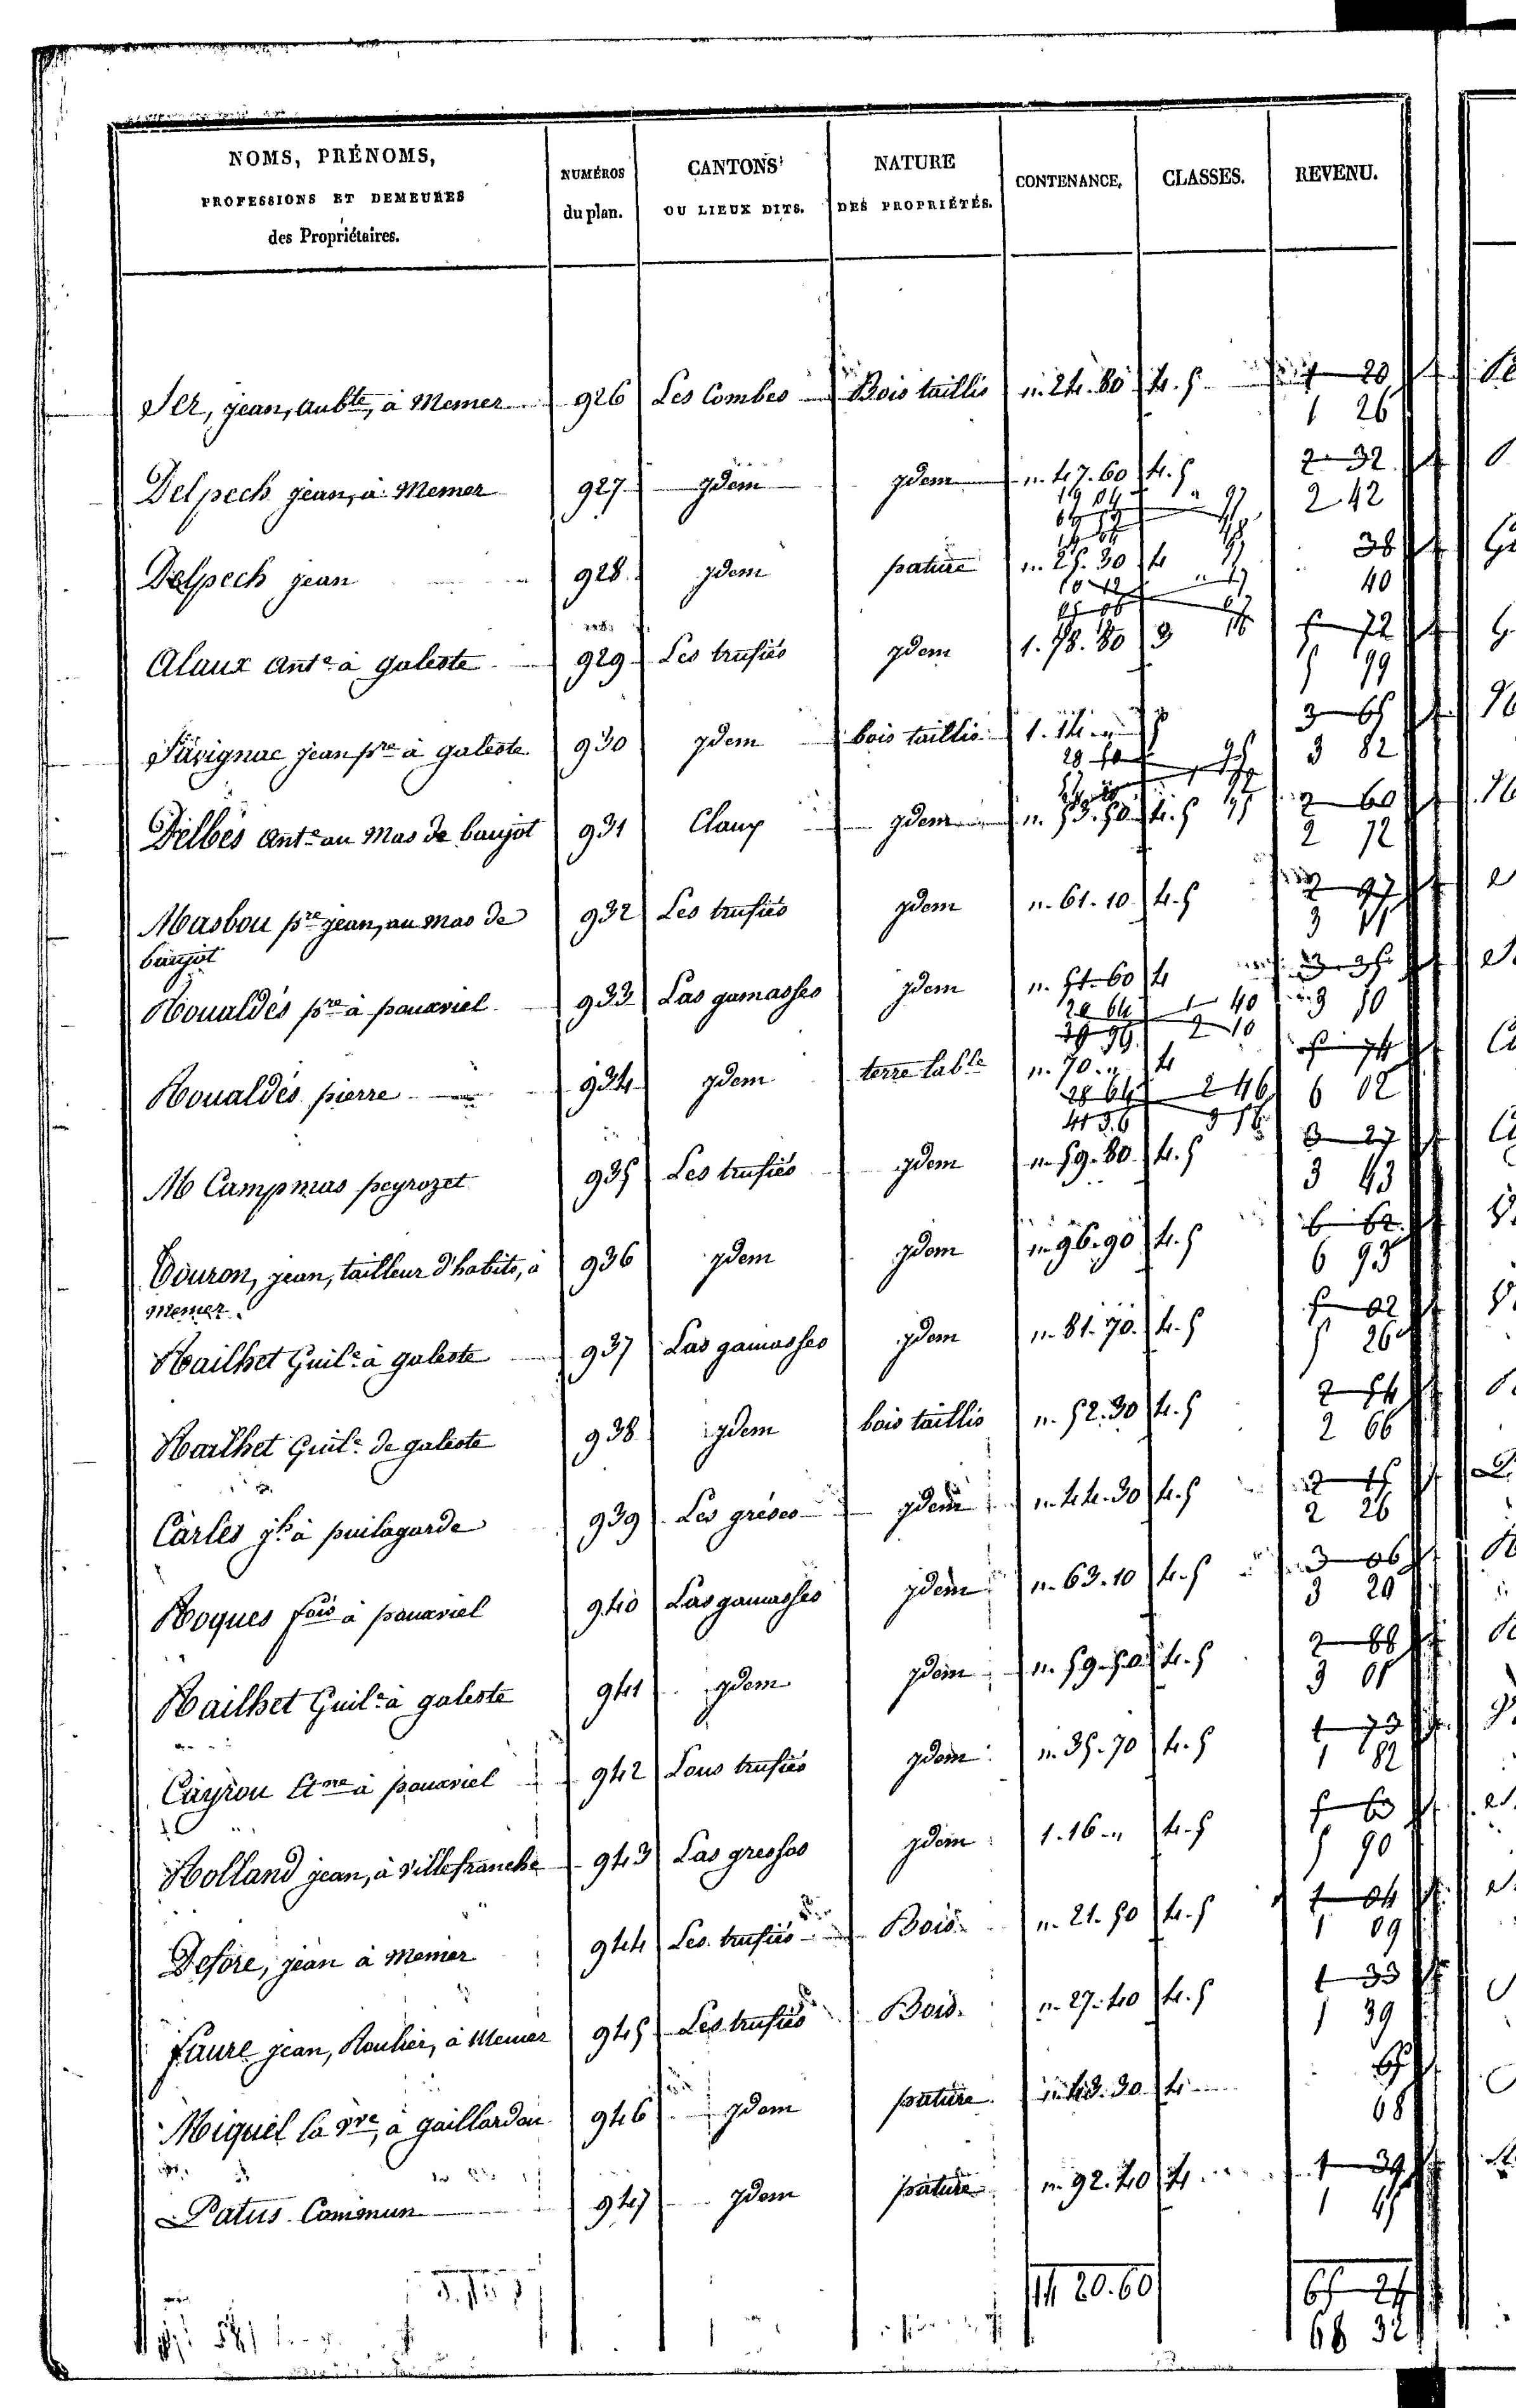 NOMS, PRÉNOMS,
PROFESSIONS ET DEMEURES
des Propriétaires.
NUMÉROS
du plan.
CANTONS
OU LIEUX DITS.
NATURE
DES PROPRIÉTÉS.
CONTENANCE.
CLASSES.
REVENU.
Ser, jean, aubte, à Memer 926 Les Combes Bois taillis „. 24. 80 4. 5 1 20
1 26
Delpech jean, à Memer 927 ydem ydem „. 47. 60 4. 5 2 32
2 42
Delpech jean 928 ydem pature „. 25. 30 4 38
40
Alaux Ante à galeste 929 Les trufiés ydem 1. 78. 80 3 5 72
5 99
Savignac jean pre à galeste 930 ydem bois taillis 1. 14. „ 5 3 65
3 82
Delbès Ante au Mas de baujot 931 Claux ydem „. 53. 50 4. 5 2 60
2 72
Masbou pre jean, au mas de 932 Les trufiés ydem „. 61. 10 4. 5 2 97
baujot 3 11
Roualdés pre à pauxviel 933 Las gamasses ydem „. 51. 60 4 3 35
20 64 1 40 3 50
2 10
Roualdés pierre 934 ydem terre lable „. 70. „ 4 5 74
28 64 2 46 6 02
41 36 3 56
M Campmas peyrozet 935 Les trufiés ydem „. 59. 80 4. 5 3 27
3 43
Couron, jean, tailleur d'habits, à 936 ydem ydem „. 96. 90 4. 5 6 62
Memer 6 93
Railhet Guile à galeste 937 Las gamasses ydem „. 81. 70 4. 5 5 02
5 26
Railhet Guile de galeste 938 ydem bois taillis „. 52. 30 4. 5 2 54
2 66
Carles jh à puilagarde 939 Les gréses ydem „. 44. 30 4. 5 2 15
2 26
Roques fois à pauxviel 940 Las gamasses ydem „. 63. 10 4. 5 3 06
3 20
Railhet Guile à galeste 941 ydem ydem „. 59. 50 4. 5 2 88
3 01
Cayrou Etne à pauxviel 942 Lous trufiés ydem „. 35. 70 4. 5 1 73
1 82
Rolland jean, à Villefranche 943 Las gressos ydem 1. 16. „ 4. 5 5 63
5 90
Defore, jean à Memer 944 Les trufiés Bois „. 21. 50 4. 5 1 04
1 09
faure jean, Roulier, à Memer 945 Les trufiés Bois „. 27. 40 4. 5 1 33
1 39
Miquel la vve, à gaillardou 946 ydem pature „. 43. 30 4 65
68
Patus Commun 947 ydem pature „. 92. 40 4 1 39
1 45
14 20. 60 65 24
68 32